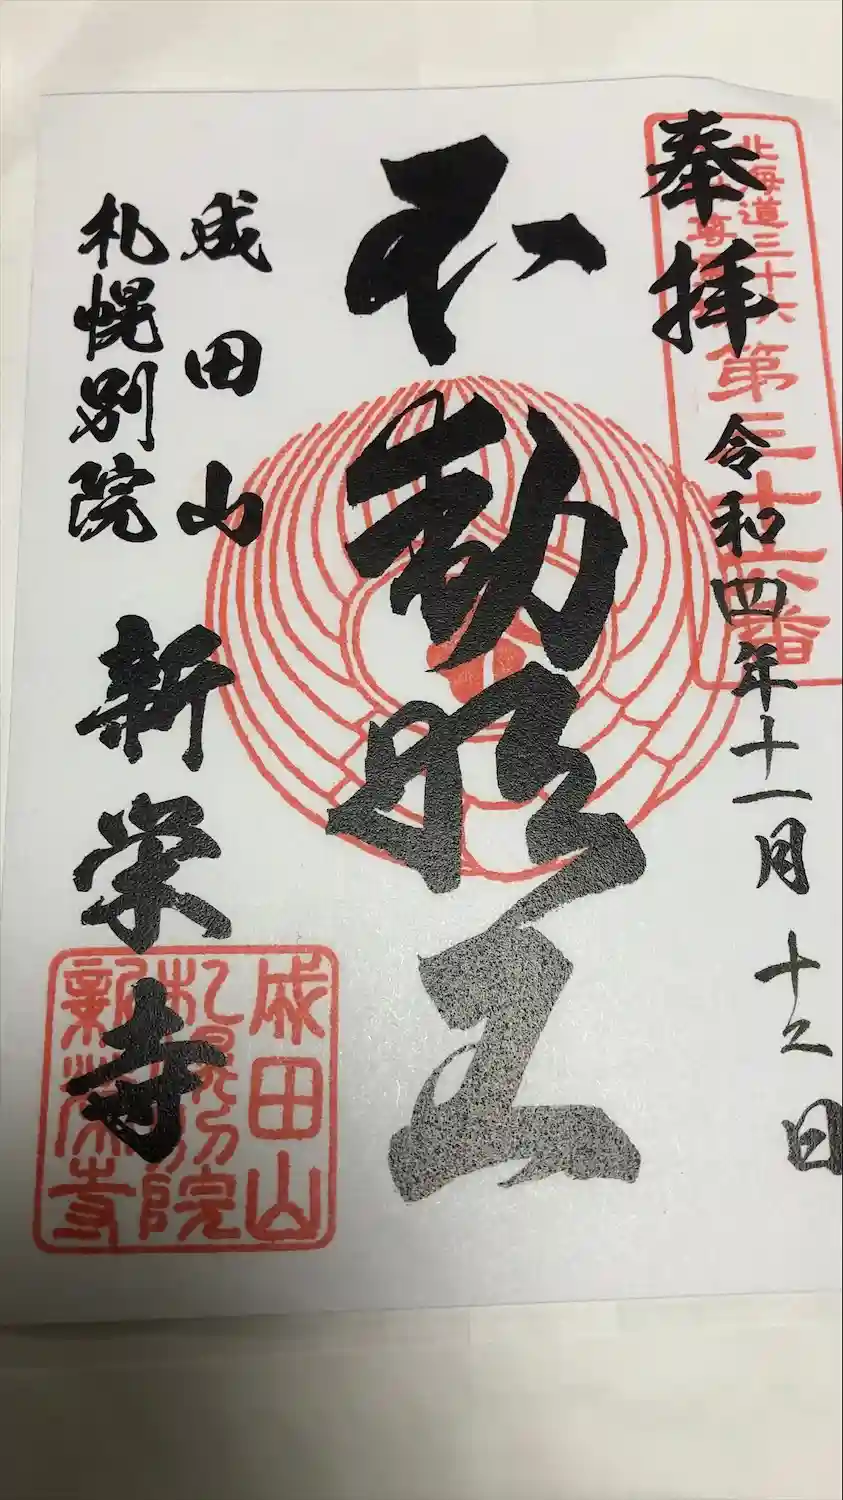 奉拝
令和四年十一月十二日
北海道三十六
第三十六番
不動明王
成田山
札幌別院
新栄寺
成田山
札幌別院
新栄寺